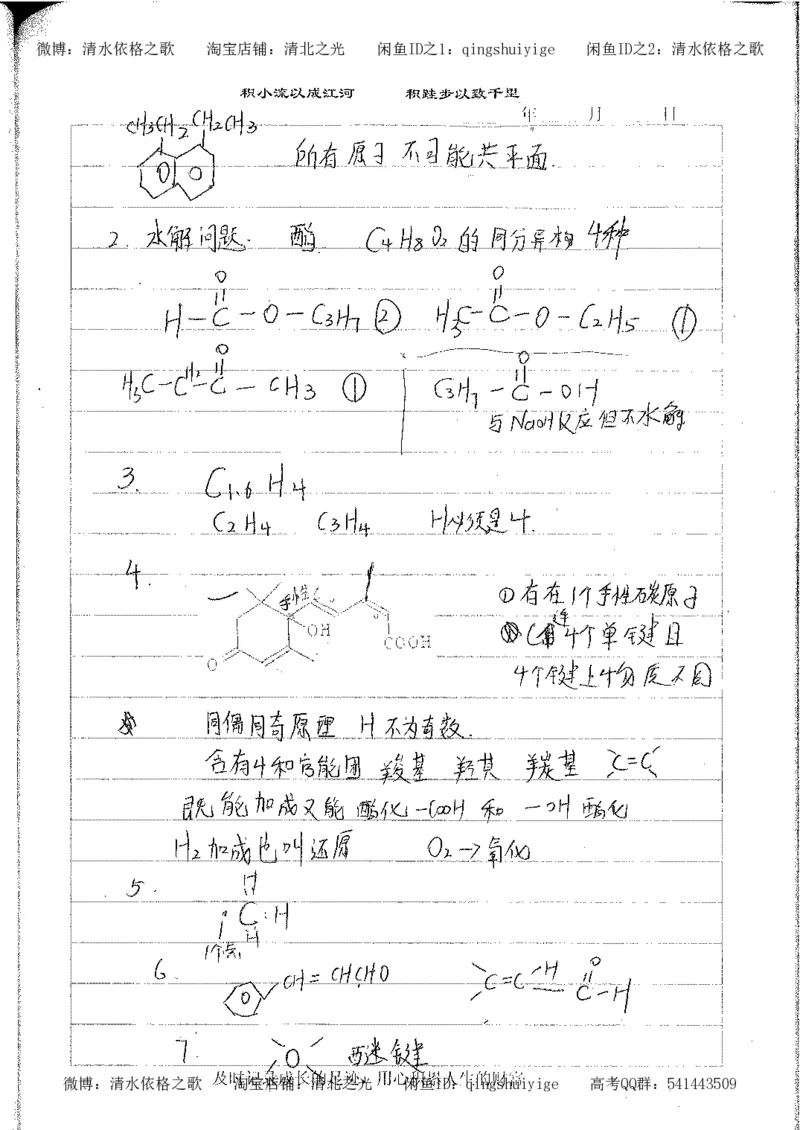 微博：清水依格之歌 淘宝店铺：清北之光 闲鱼ID之1：qingshuiyige 闲鱼ID之2：清水依格之歌
积小流以成江河 积跬步以致千里
年 月 日
CH3CH2 CH2CH3
所有原子不可能共平面.
2. 水解问题. 酯 C4H8O2的同分异构4种
O O
H-C-O-C3H7 ② H3C-C-O-C2H5 ①
O O
H3C-CH2-C-CH3 ① C3H7-C-OH
与NaOH反应但不水解
3. C1.6H4
C2H4 C3H4 H必须是4.
4. 手性C
OH
COOH
O
①存在1个手性碳原子
C连4个单键且
4个键上4物质不同
同偶同奇原理 H不为奇数.
含有4种官能团 羧基 羟基 羰基 C=C
既能加成又能酯化 -COOH和-OH酯化
H2加成也叫还原 O2→氧化
5. H
C:H
H
1个点
6. CH=CHCHO C=C-H O
C-H
7. O 醚键
及时记录成长的足迹，用心积攒人生的财富
微博：清水依格之歌 淘宝店铺：清北之光 闲鱼ID：qingshuiyige 高考QQ群：541443509